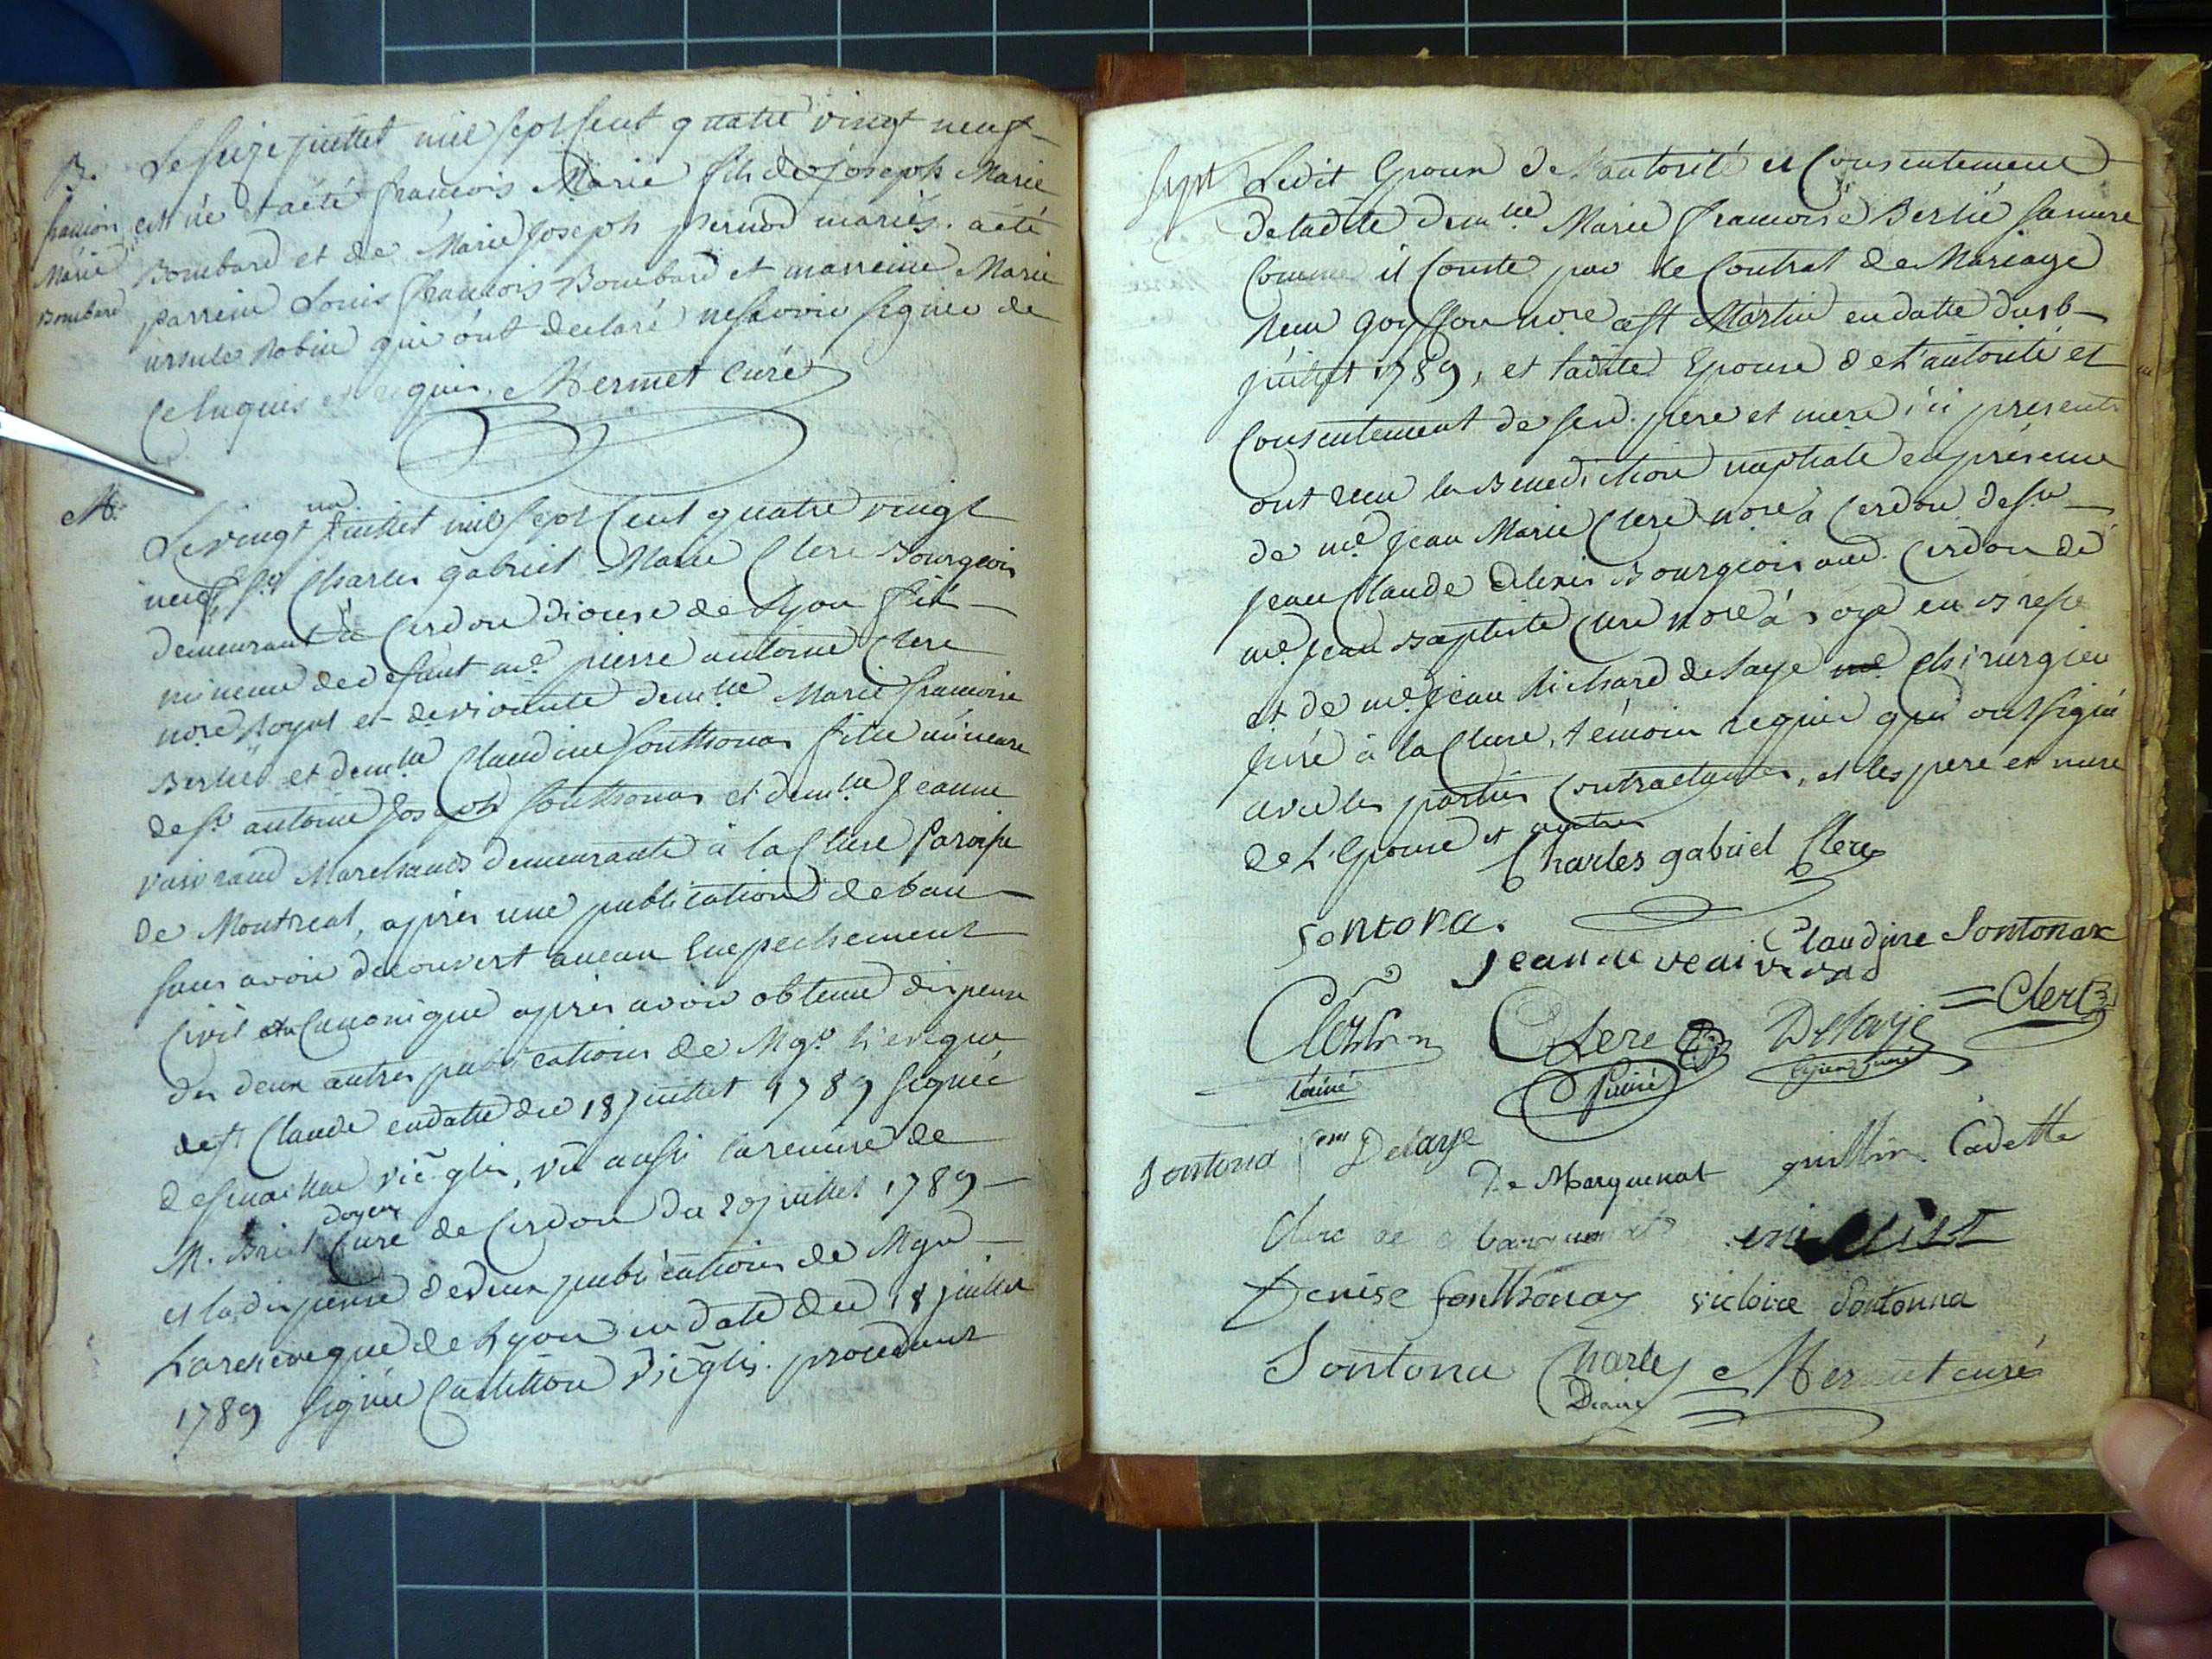 B.
françois
Marie
Bombard
Le seize juillet mil sept cent quatre vingt neuf
est né et a été françois Marie fils de joseph Marie
Bombard et de Marie Joseph pernod mariés. a été
parrein Louis françois Bombard et marreine Marie
ursule Robin qui ont declaré ne savoir signer de
ce enquis et requis. Mermet curé
M.
Le vingt un juillet mil sept cent quatre vingt
neuf Sr. Charles gabriel Marie Clerc Bourgeois
demeurant à Cerdon diocese de Lyon fils
mineur de defunt me. pierre antoine Clerc
nore Royal et de vivante demlle Marie françoise
Berlié et demlle Claudine Sonthonax fille mineure
de sr antoine Joseph Sonthonax et demlle Jeanne
vaivrand Marchands demeurants à la Cluse Paroisse
de Montreal, après une publication de ban
sans avoir decouvert aucun Empechement
Civil ou Canonique après avoir obtenu dispense
des deux autres publications de Mgr L'evêque
de St Claude en datte du 18 juillet 1789 signée
vic. gle, vu aussi la remise de
M. doyen Curé de Cerdon du 20 juillet 1789
et la dispense de deux publications de Mgr
L'archeveque de Lyon en date du 18 juillet
1789 signée Castillon vic. gle. procedant
sept
Ledit Epoux de l'autorité et Consentement
de ladite demlle Marie françoise Berlié sa mere
Comme il Conste par le Contrat de Mariage
reçu goyffon nore à St Martin en datte du 16
juillet 1789, et ladite Epouse de L'autorité et
Consentement de sesd. pere et mere ici présents
ont reçu la Benediction nuptiale en présence
de me. Jean Marie Clerc nore à Cerdon de sr
Jean Claude Alexis Bourgeois aud. Cerdon de
me. Jean Baptiste Clerc nore à en Bresse
et de me. Jean Richard delaye me chirurgien
juré à la Cluse, témoins requis qui ont signé
avec les parties Contractantes, et les pere et mere
de L'Epouse et autres
Charles gabriel Clerc
Sontona.
Claudine Sontonax
Jeanne vaivrand
Clerc Delaye = Clerc
Sontona Delaye
De Marquenat guillin Cadette
Denise Sonthonax victoire Sontonna
Sontona Charles Mermet curé
Diacre